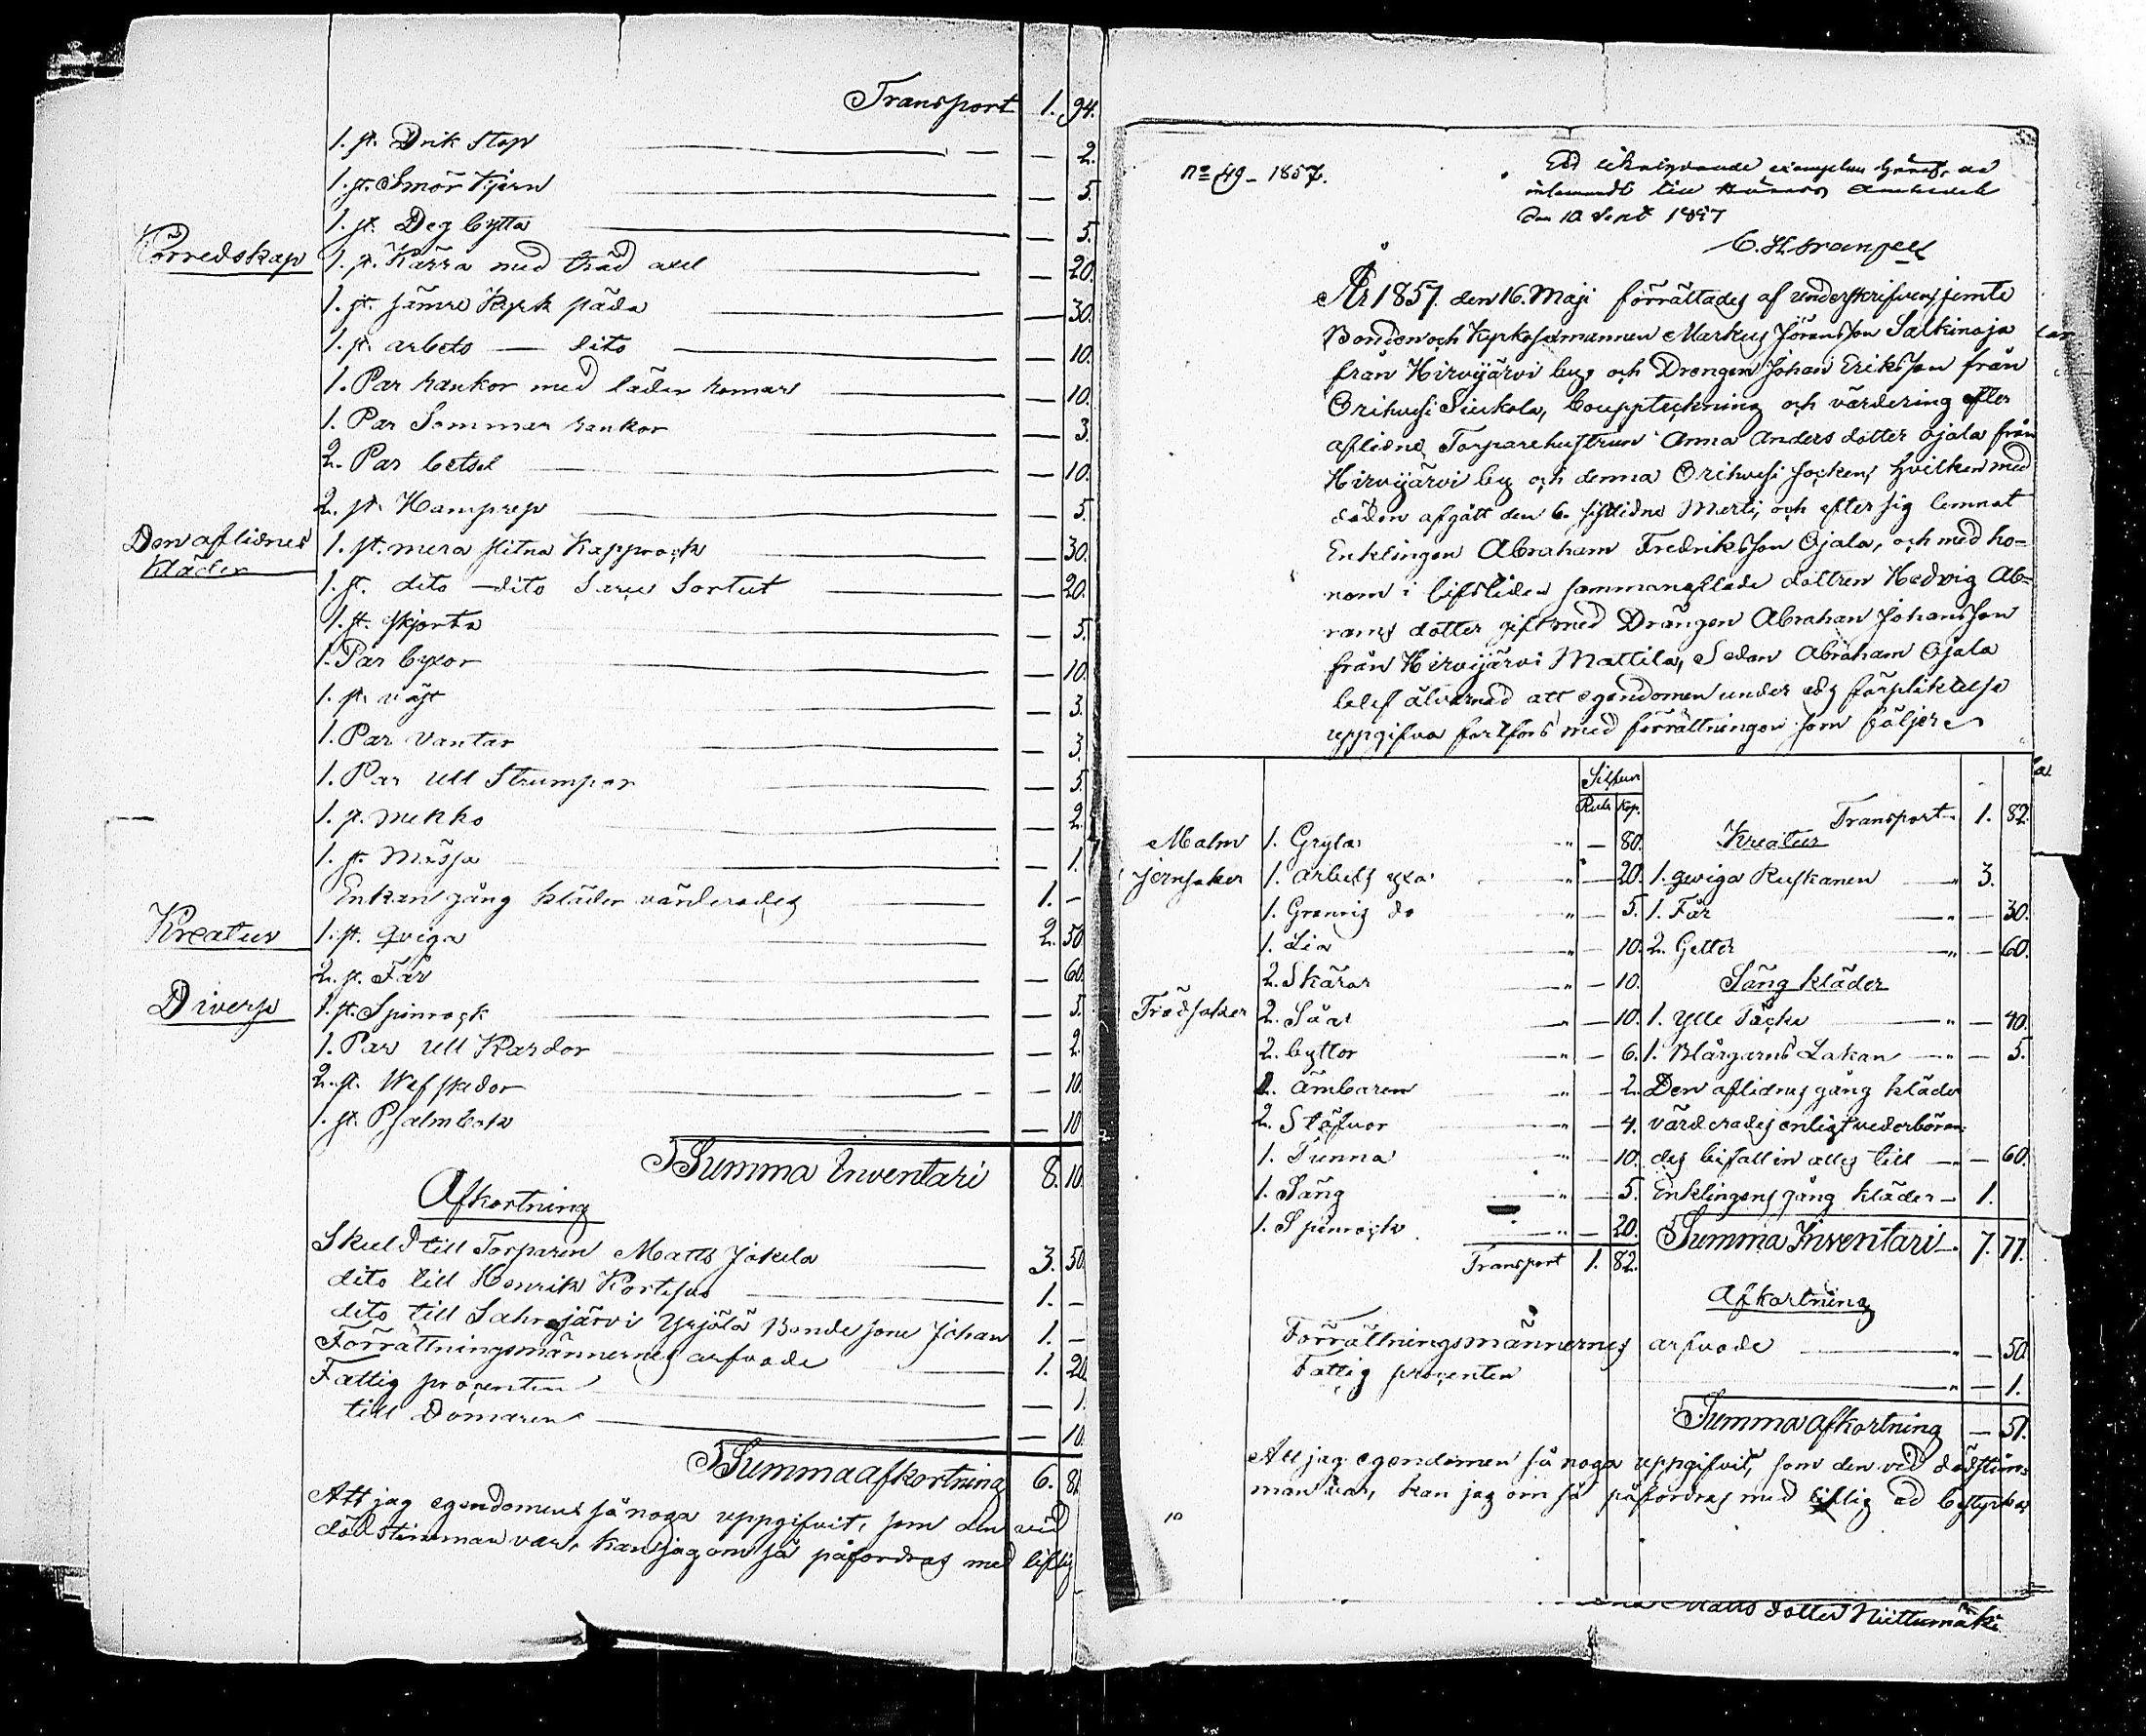 Transport 1. 94.
1. st. Drik stop — 2.
1. st. Smör Kjern — 5.
1. st. Deg bytta — 5.
Körredskap 1. st. Kärra med träd axel — 20.
1. st. sämre Kyrk släda — 30.
1. st. arbets — dito — 10.
1. Par rankor med läder romar — 10.
1. Par Sommar rankor — 3.
2. Par betsel — 10.
2. st. Hamprep — 5.
Den aflidnes 1. st. mera slitna Kapprock — 30.
Kläder
1. st. dito — dito Sars Sortut — 20.
1. st. skjorta — 5.
1. Par byxor — 10.
1. st. väst — 3.
1. Par Vantar — 3.
1. Par Ull Strumpor — 5.
1. st. mekko — 2.
1. st. Mössa — 1.
Enkans gång kläder värderades 1. –
Kreatur 1. st. qviga 2. 50.
2. st. Får — 60.
Diverse 1. st. Spinrock — 5.
1. Par Ull Kardor — 2.
2. st. Wäfskedor — 10.
1. st. Psalmbok — 10.
Summa Inventari 8. 10.
Afkortning
Skuld till Torparen Matts Jokela 3. 50.
dito till Henrik Kortesuo 1. –
dito till Sahrajärvi Yrjölä Bonde sone Johan 1. –
Förrättningsmännernes arfvode 1. 20.
Fattig procenten — 1.
till Domaren — 10.
Summa afkortning 6. 81.
Att jag egendomens så noga uppgifvit, som den vid
dödstimman var, kan jag om så påfordras med liflig
No 49 – 1857.
Ett likalydande exemplar häraf, är
inlemnadt till Härads
den 10 Sept 1857
År 1857 den 16. Maji förrättades af underskrifven jemte
Bonden och Kyrkosexmannen Markus Jöransson Salkinoja
från Hirvijärvi by, och Drengen Johan Eriksson från
Orihvesi Siukola, bouppteckning och värdering efter
aflidne Torparehustrun Anna Anders dotter Ojala från
Hirvijärvi by och denna Orihvesi socken, hvilken med
döden afgått den 6. sistlidne Martii, och efter sig lemnat
Enklingen Abraham Fredriksson Ojala, och med ho-
nom i lifstiden sammanaflade dottren Hedvig Ab-
rams dotter gift med Drängen Abraham Johansson
från Hirvijärvi Mattila, Sedan Abraham Ojala
blef alvarnad att egendomen under eds förpliktelse
uppgifva fortfors med förrättningen som följer
Silfver
Rub. Kop.
Transport 1. 82.
Malm 1. Gryta — 80. Kreatur
Jernsaker 1. arbets yxa — 20. 1. qwiga Ruskanen 3.
1. do — 5. 1. Får — 30.
1. Lia — 10. 2. Getter — 60.
2. Skäror — 10. Säng kläder
Trädsaker 2. Såar — 10. 1. ylle Täcke — 40.
2. byttor — 6. 1. Blårgarns Lakan — 5.
Ämbaren — 2. Den aflidnes gång kläder
2. Stäfvor — 4. värderades enligt vederböran-
1. Tunna — 10. des bifall in alles till — 60.
1. Säng — 5. Enklingens gång kläder — 1.
1. Spinrock — 20. Summa Inventari 7. 77.
Transport 1. 82.
Afkortning
Förrättningsmännernes arfvode — 50.
Fattig procenten — 1.
Summa afkortning — 51.
Att jag egendomen så noga uppgifvit, som den vid dödstim-
man var, kan jag om så påfordras med liflig ed bestyrka
Matts dotter Niittumäki